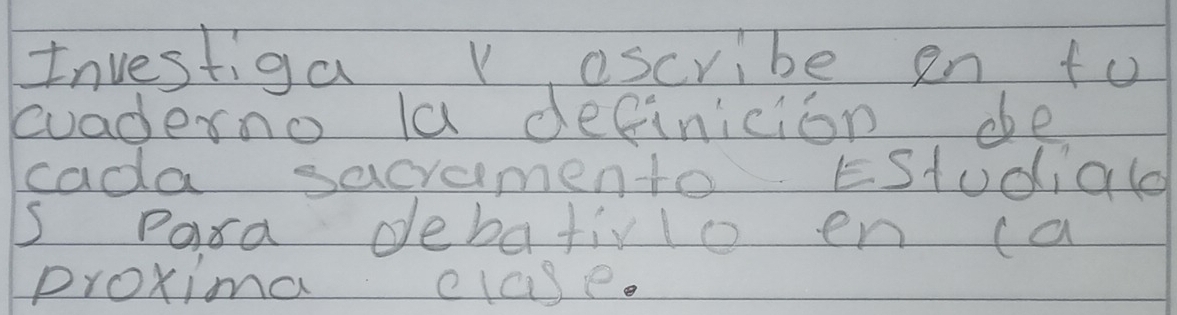 Investiga y escribe en tu
cuaderno la definición de
cada sacramento Estudialo
s Para debatirlo en la
proxima clase.